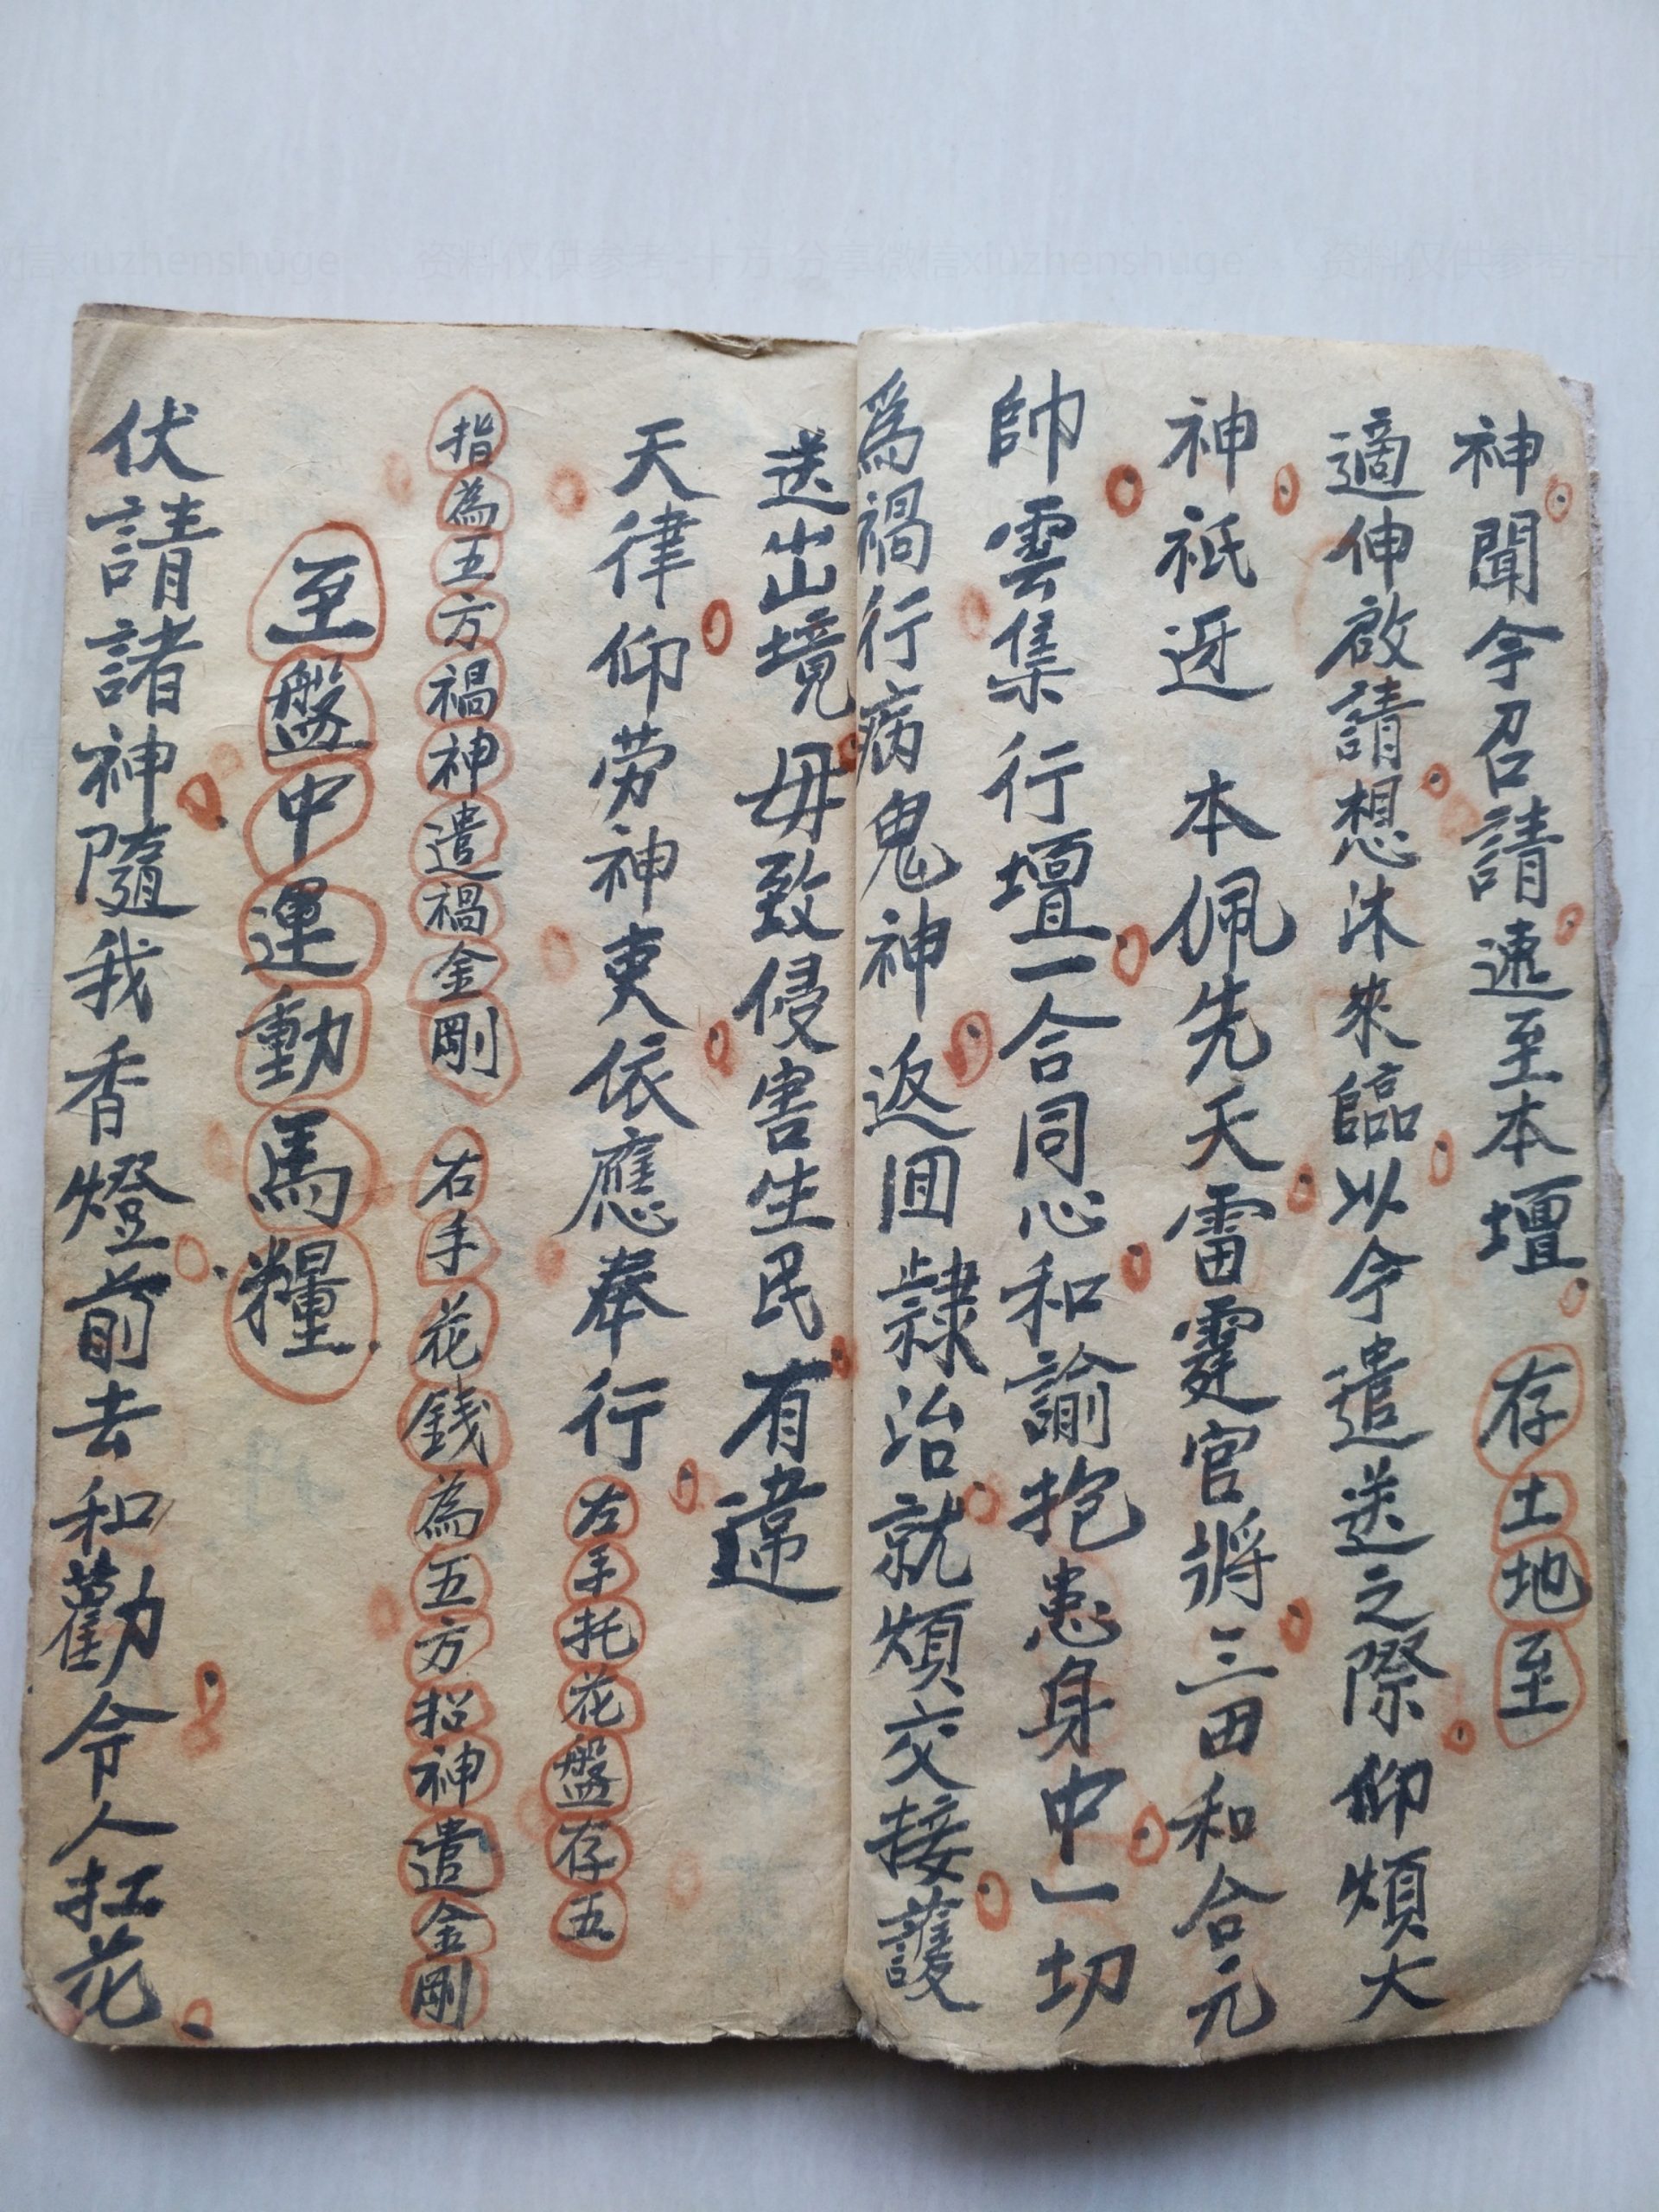 神聞今召請速至本壇 存土地至
適伸啟請想沐來臨以今遣送之際仰煩大
神祇迓 本佩先天雷霆官將三田和合元
帥雲集行壇一合同心和諭抱患身中一切
為禍行病鬼神返回隸治就煩交接護
送出境毋致侵害生民有違
天律仰劳神吏依應奉行 左手托花盤存五
指為五方禍神遣禍金剛 右手花錢為五方招神遣金剛
至盤中運動馬糧
伏請諸神隨我香燈前去和勸令人扛花
资料仅供参考-十方 分享微信xiuzhenshuge